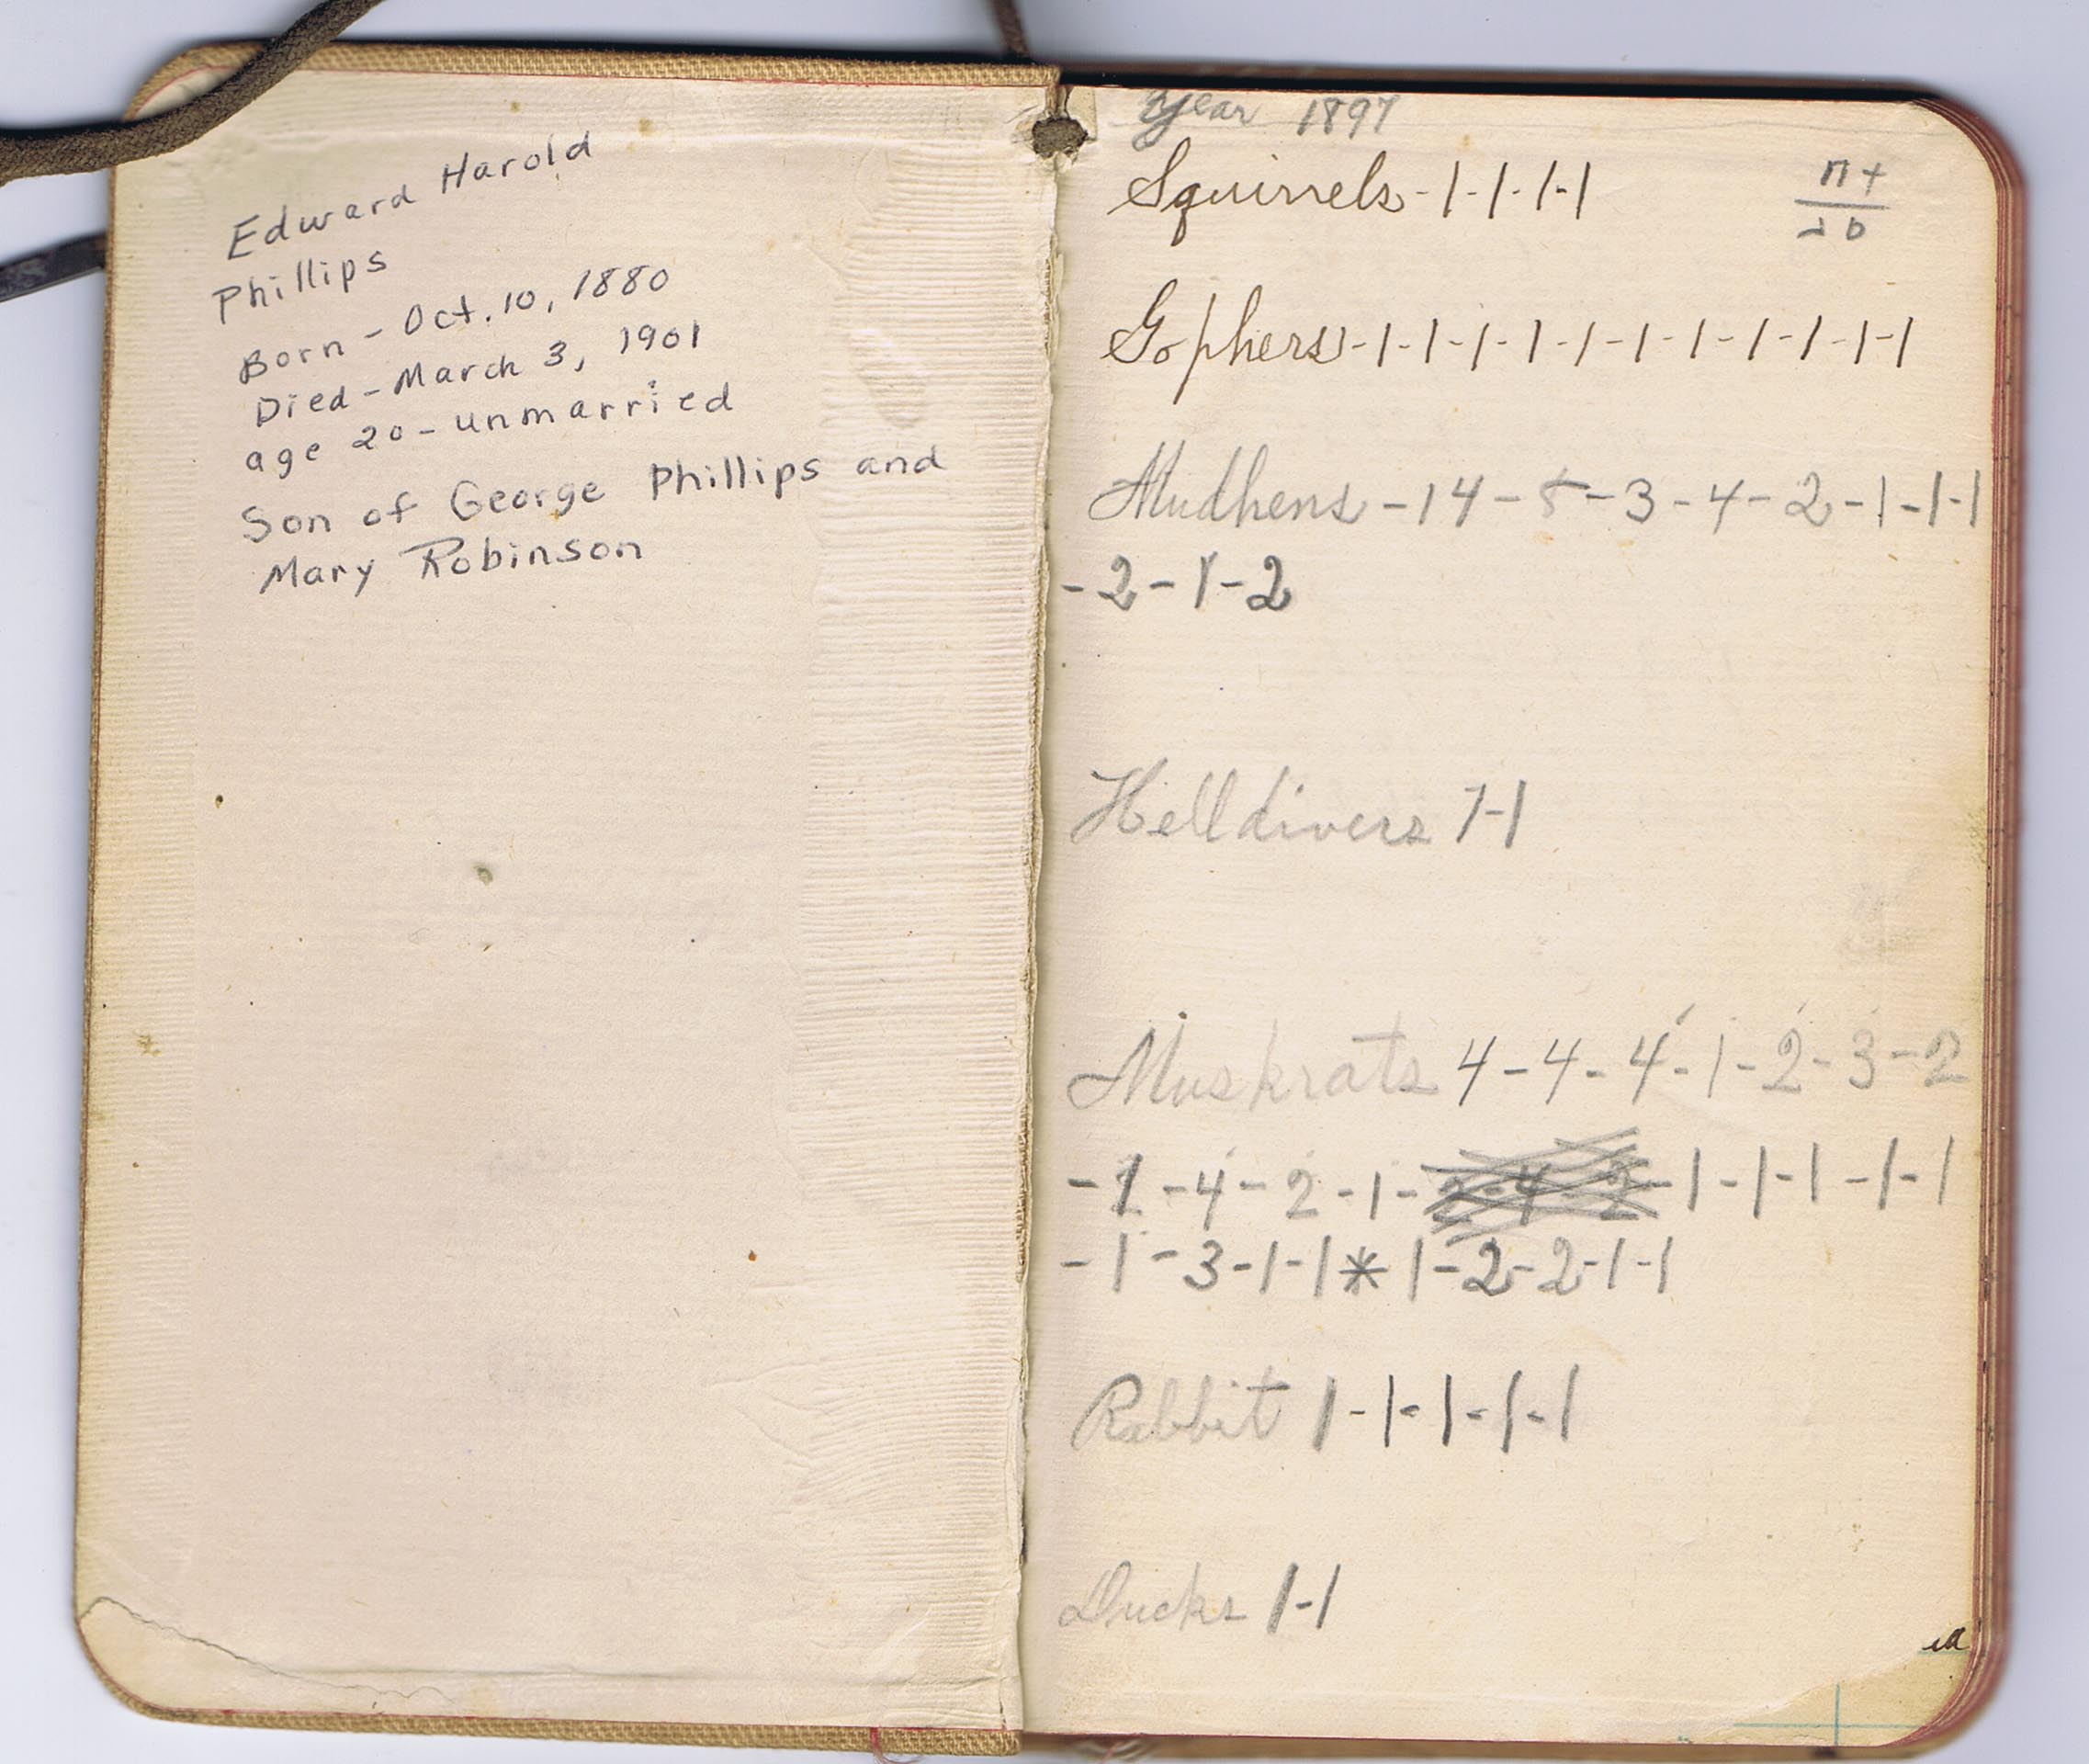 Edward Harold
Phillips
Born - Oct. 10, 1880
Died - March 3, 1901
age 20 - unmarried
Son of George Phillips and
Mary Robinson
Year 1897
Squirrels - 1 - 1 - 1 - 1
Gophers - 1 - 1 - 1 - 1 - 1 - 1 - 1 - 1 - 1 - 1 - 1
Mudhens - 14 - 5 - 3 - 4 - 2 - 1 - 1 - 1
- 2 - 1 - 2
Helldivers 1 - 1
Muskrats 4 - 4 - 4 - 1 - 2 - 3 - 2
- 1 - 4 - 2 - 1 - 2 - 4 - 2 - 1 - 1 - 1 - 1 - 1
- 1 - 3 - 1 - 1 * 1 - 2 - 2 - 1 - 1
Rabbit 1 - 1 - 1 - 1 - 1
Ducks 1 - 1